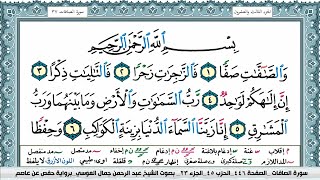 الجزء الثالث والعشرون
سورة الصافات ٣٧
بِسْمِ اللَّهِ الرَّحْمَٰنِ الرَّحِيمِ
وَالصَّٰٓفَّٰتِ صَفًّا ١ فَالزَّٰجِرَٰتِ زَجْرًا ٢ فَالتَّٰلِيَٰتِ ذِكْرًا ٣
إِنَّ إِلَٰهَكُمْ لَوَٰحِدٌ ٤ رَّبُّ السَّمَٰوَٰتِ وَالْأَرْضِ وَمَا بَيْنَهُمَا وَرَبُّ
الْمَشَٰرِقِ ٥ إِنَّا زَيَّنَّا السَّمَآءَ الدُّنْيَا بِزِينَةٍ الْكَوَاكِبِ ٦ وَحِفْظًا
سورة الصافات الصفحة ٤٤٦ الحزب ٤٥ الجزء ٢٣ بصوت الشيخ عبد الرحمن جمال العوسي برواية حفص عن عاصم